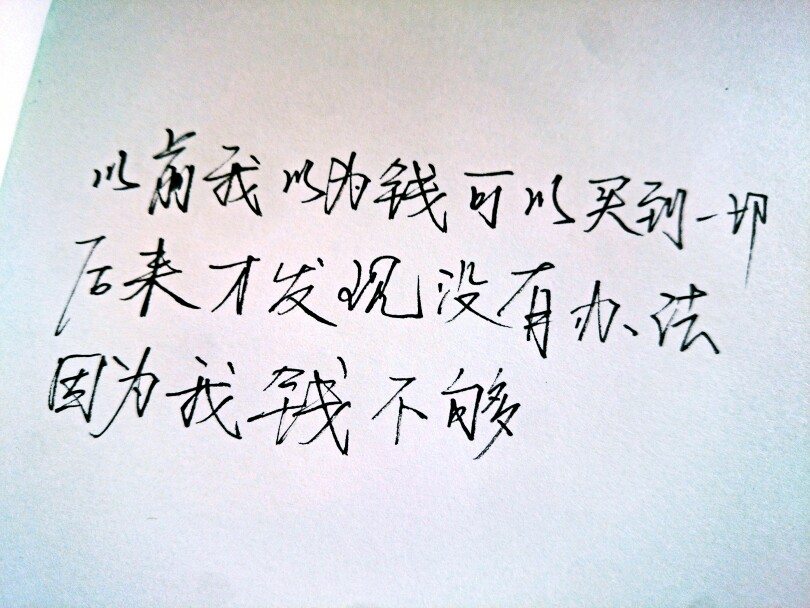 以前我以为钱可以买到一切
后来才发现没有办法
因为我钱不够